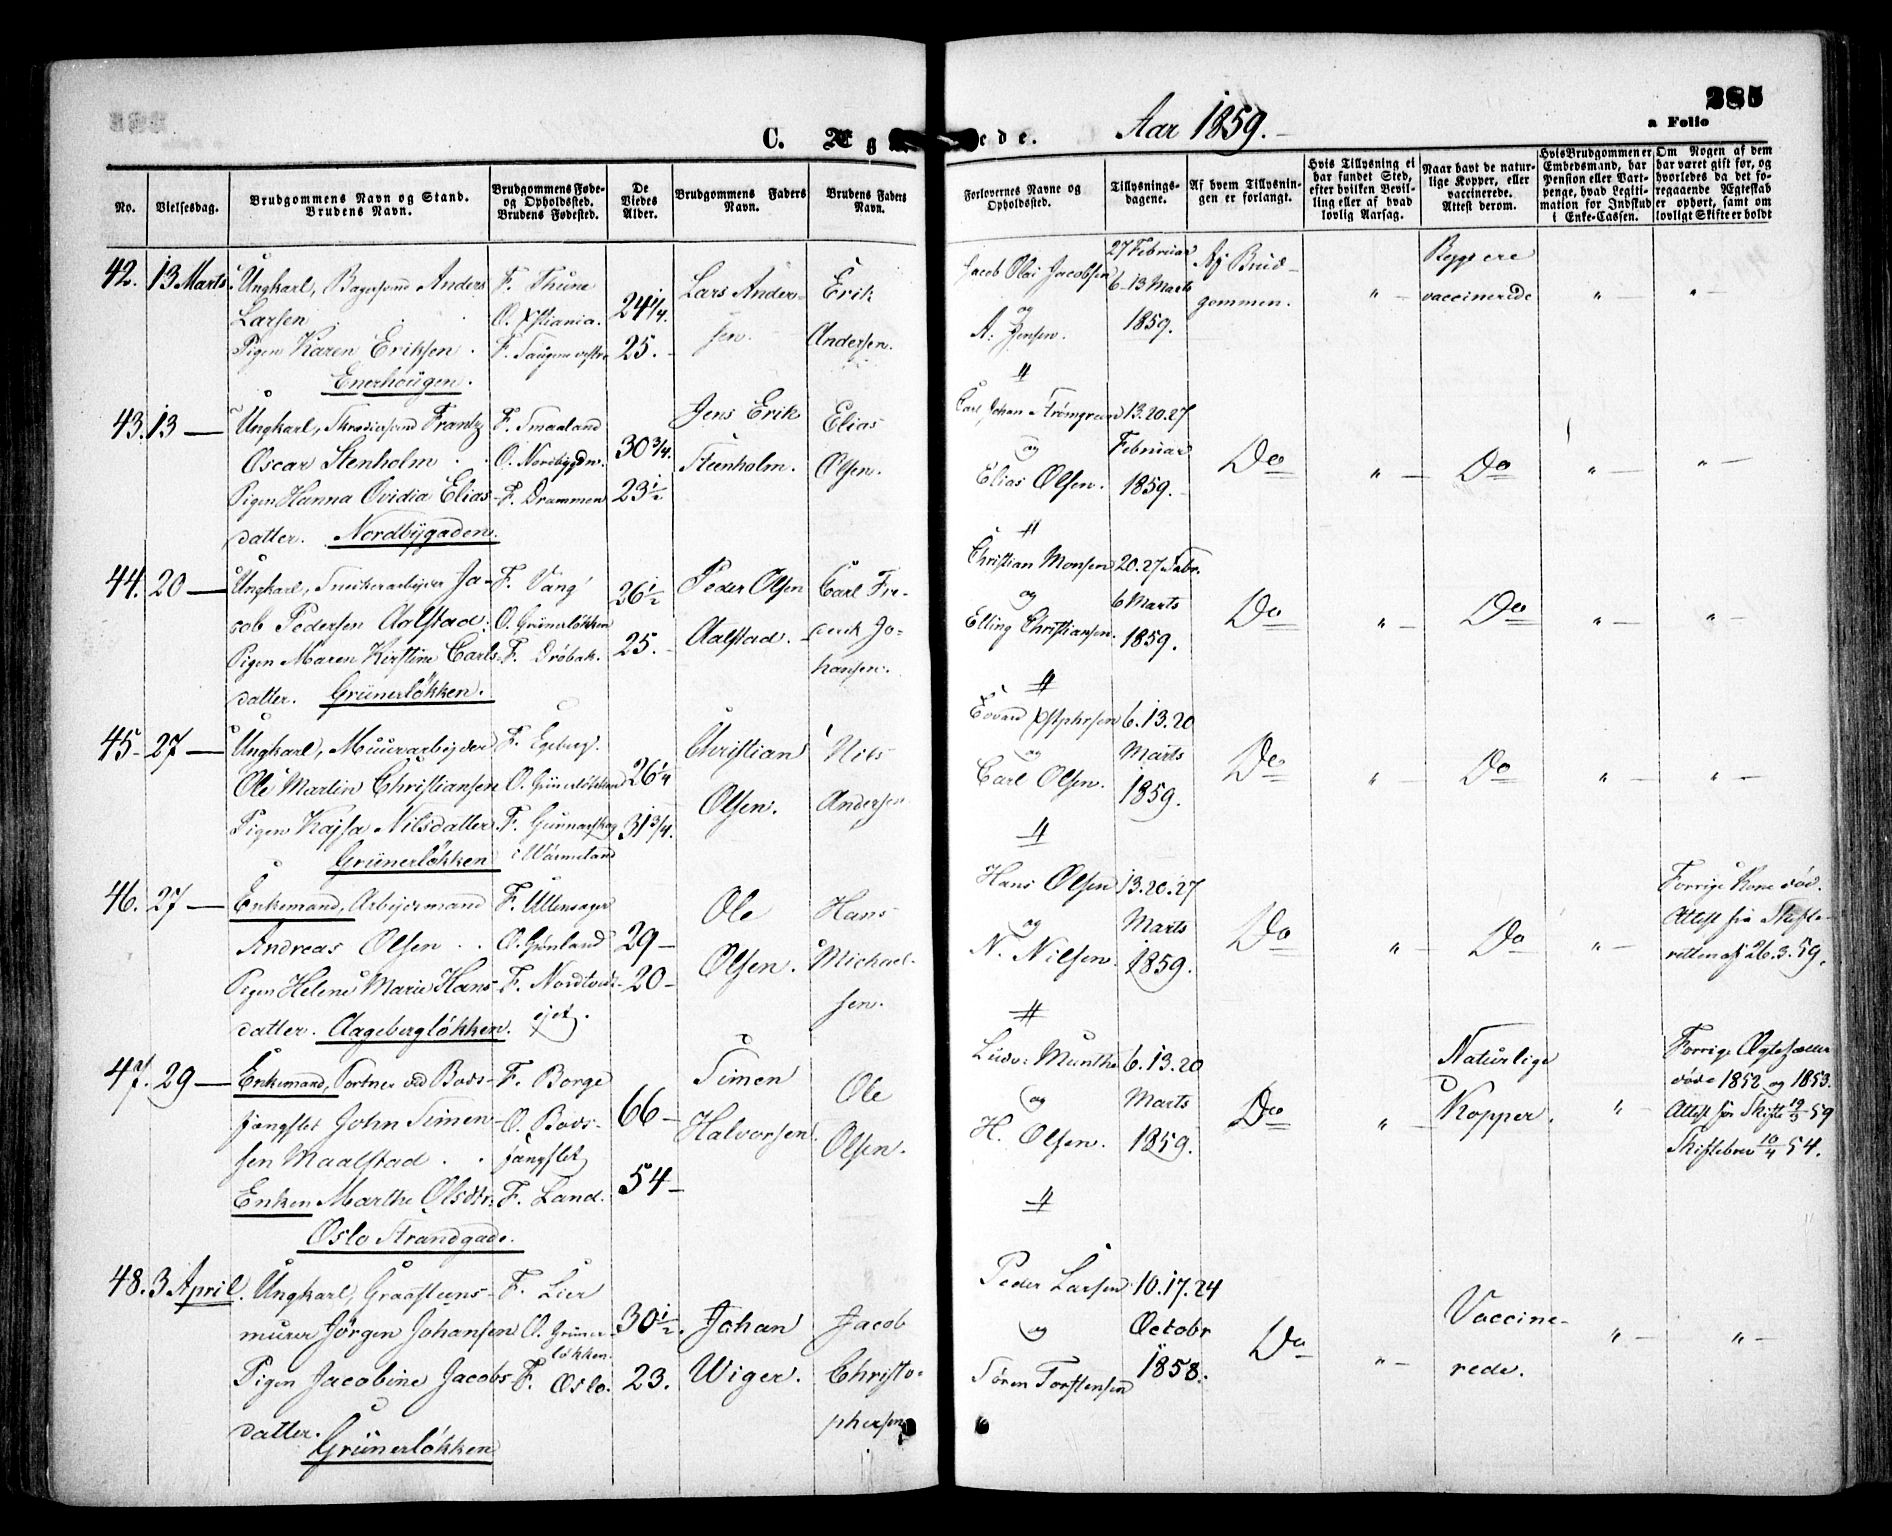 C. Æg
ede. Aar 1859.
385
a Folio
No.
Vielsesdag.
Brudgommens Navn og Stand.
Brudens Navn.
Brudgommens Føde-
og Opholdsted.
Brudens Fødested.
De
Viedes
Alder.
Brudgommens Faders
Navn.
Brudens Faders
Navn.
Forlovernes Navne og
Opholdsted.
Tillysnings-
dagene.
Af hvem Tillysnin-
gen er forlangt.
Hvis Tillysning ei
har fundet Sted,
efter hvilken Bevil-
ling eller af hvad
lovlig Aarsag.
Naar havt de natur-
lige Kopper, eller
vaccinerede.
Attest derom.
Hvis Brudgommen er
Embedsmand, har
Pension eller Vart-
penge, hvad Legiti-
mation for Indskud
i Enke-Cassen.
Om Nogen af dem
har været gift før, og
hvorledes da det fo-
regaaende Ægteskab
er ophørt, samt om
lovligt Skifte er holdt
42. 13 Marts.
Ungkarl, Bagersvend Anders
Larsen
Pigen Karen Eriksen.
Enerhougen.
F. Thune
O. Xstiania.
F. Taugene vestre
24 1/4.
25.
Lars Ander-
sen.
Erik
Andersen.
Jacob Olai Jacobsen
og
A. Jensen.
27 Februar
6-13 Marts
1859.
Af Brud-
gommen.
" —
Begge ere
vaccinerede
" —
" —
43. 13 —
Ungkarl, Skrædersvend Frantz
Oscar Stenholm
Pigen Hanna Ovidia Elias-
datter. Nordbygaden.
F. Smaaland
O. Nordbygdn.
F. Drammen
30 3/4.
23 1/2
Jens Erik
Steenholm.
Elias
Olsen.
Carl Johan Strømgreen
og
Elias Olsen.
13.20.27
Februar
1859.
Do
" —
Do
" —
" —
44. 20 —
Ungkarl, Snedkerarbejder Ja-
cob Pedersen Aalstad.
Pigen Maren Kirstine Carls-
datter. Grünerløkken.
F. Vang
O. Grünerløkken
F. Drøbak.
26 1/2
25.
Peder Olsen
Aalstad.
Carl Fre-
derik Jo-
hansen.
Christian Monsen
og
Elling Christiansen.
20.27 Febr.
6 Marts
1859.
Do
" —
Do
" —
" —
45. 27 —
Ungkarl, Muurarbejder
Ole Martin Christiansen
Pigen Kajsa Nilsdatter
Grünerløkken
F. Egeberg.
O. Grünerløkken
F. Gunnarskog
i Wärmeland
26 1/4
31 3/4.
Christian
Olsen.
Nils
Andersen
Edvard Xstphersen
og
Carl Olsen.
6.13.20
Marts
1859.
Do
" —
Do
" —
" —
46. 27 —
Enkemand, Arbejdsmand
Andreas Olsen
Pigen Helene Marie Hans-
datter. Aagebergløkken.
F. Ullensager
O. Grønland
F. Nordtvedt-
ejet.
29 —
20 —
Ole
Olsen.
Hans
Michael-
sen.
Hans Olsen
og
N. Nilsen.
13.20.27
Marts
1859.
Do
" —
Do
" —
Forrige Kone død.
Attest fra Skifte-
retten af 26.3.59.
47. 29 —
Enkemand, Portner ved Bods-
fængslet John Simen-
sen Maalstad
Enken Marthe Olsdtr.
Oslo Strandgade.
F. Borge
O. Bods-
fængslet
F. Land.
66 —
54 —
Simen
Halvorsen.
Ole
Olsen.
Ludv: Munthe
og
H. Olsen.
6.13.20
Marts
1859.
Do
" —
Naturlige
Kopper.
" —
Forrige Ægtefæller
døde 1852 og 1853.
Attest for Skifte 19/3 59
Skiftebrev 10/4 54.
48. 3 April.
Ungkarl, Graasteens-
murer Jørgen Johansen
Pigen Jacobine Jacobs-
datter.
Grünerløkken
F. Lier
O. Grüner-
løkken.
F. Oslo.
30 1/2.
23.
Johan
Wiger.
Jacob
Christo-
phersen
Peder Larsen
og
Søren Torstensen
10.17.24
Octobr
1858.
Do
" —
Vaccine-
rede.
" —
" —